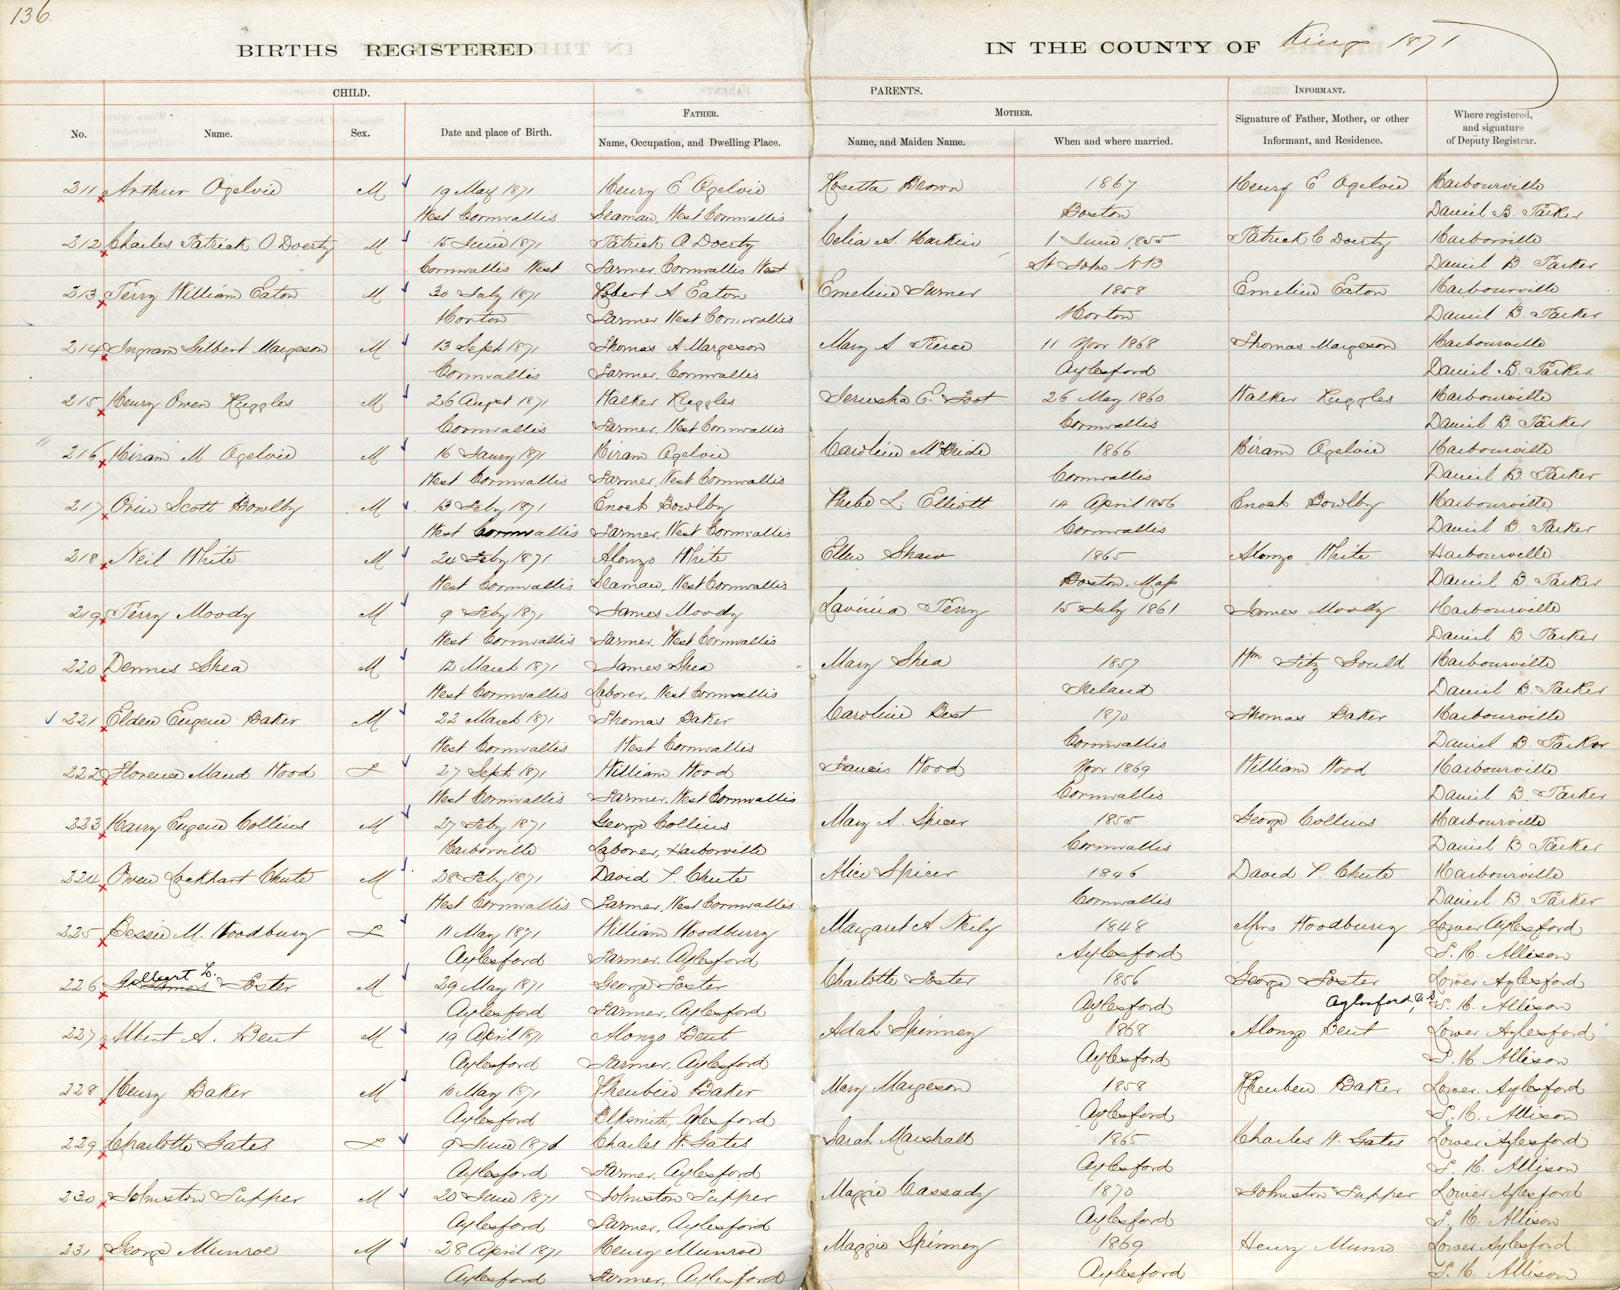 136.
BIRTHS REGISTERED IN THE COUNTY OF Kings 1871
CHILD. PARENTS. INFORMANT.
FATHER. MOTHER.
No. Name. Sex. Date and place of Birth. Name, Occupation, and Dwelling Place. Name, and Maiden Name. When and where married. Signature of Father, Mother, or other Informant, and Residence. Where registered, and signature of Deputy Registrar.
211 Arthur Ogelvie M 19 May 1871 Henry E Ogelvie Rosetta Brown 1867 Henry E Ogelvie Harbourville
West Cornwallis Seaman, West Cornwallis Boston Daniel B. Parker
212 Charles Patrick O Doerty M 15 June 1871 Patrick O Doerty Celia A. Harkin 1 June 1855 Patrick O Doerty Harborville
Cornwallis West Farmer, Cornwallis West St John N B Daniel B. Parker
213 Perry William Eaton M 30 July 1871 Robert A Eaton Emeline Turner 1858 Emeline Eaton Harbourville
Horton Farmer West Cornwallis Horton Daniel B. Parker
214 Ingram Gilbert Margeson M 13 Sept 1871 Thomas A Margeson Mary A Pierce 11 Novr 1868 Thomas Margeson Harbourville
Cornwallis Farmer, Cornwallis Aylesford Daniel B. Parker
215 Henry Owen Ruggles M 26 Augst 1871 Walker Ruggles Jerusha E. Foot 26 May 1860 Walker Ruggles Harbourville
Cornwallis Farmer, West Cornwallis Cornwallis Daniel B. Parker
216 Hiram M Ogelvie M 16 Jany 1871 Hiram Ogelvie Caroline McBride 1866 Hiram Ogelvie Harbourville
West Cornwallis Farmer, West Cornwallis Cornwallis Daniel B. Parker
217 Orin Scott Bowlby M 13 Feby 1871 Enoch Bowlby Phebe L. Elliott 14 April 1856 Enoch Bowlby Harbourville
West Cornwallis Farmer, West Cornwallis Cornwallis Daniel B Parker
218 Neil White M 24 Feby 1871 Alonzo White Ellen Shaw 1865 Alonzo White Harbourville
West Cornwallis Seaman, West Cornwallis Boston, Mass Daniel B. Parker
219 Perry Moody M 9 Feby 1871 James Moody Lavinia Perry 15 July 1861 James Moody Harbourville
West Cornwallis Farmer, West Cornwallis Daniel B Parker
220 Dennis Shea M 12 March 1871 James Shea Mary Shea 1857 Wm Fitz Gould Harbourville
West Cornwallis Laborer, West Cornwallis Ireland Daniel B. Parker
221 Elden Eugene Baker M 22 March 1871 Thomas Baker Caroline Best 1870 Thomas Baker Harbourville
West Cornwallis West Cornwallis Cornwallis Daniel B. Parker
222 Florence Maud Wood F 27 Sept 1871 William Wood Francis Wood Novr 1869 William Wood Harbourville
West Cornwallis Farmer, West Cornwallis Cornwallis Daniel B. Parker
223 Harry Eugene Collins M 27 Feby 1871 George Collins Mary A. Spicer 1855 George Collins Harbourville
Harborville Laborer, Harborville Cornwallis Daniel B Parker
224 Owen Lockhart Chute M 28 Feby 1871 David P. Chute Alice Spicer 1846 David P. Chute Harbourville
West Cornwallis Farmer, West Cornwallis Cornwallis Daniel B Parker
225 Bessie M. Woodbury F 11 May 1871 William Woodburry Margaret A Neily 1848 Mrs Woodburry Lower Aylesford
Aylesford Farmer, Aylesford Aylesford S. H. Allison
226 Foster M 29 May 1871 George Foster Charlotte Foster 1856 George Foster Lower Aylesford
Aylesford Farmer, Aylesford Aylesford Aylesford, S. H. Allison
227 Albert A. Bent M 19 April 1871 Alonzo Bent Adah Spinney 1868 Alonzo Bent Lower Aylesford
Aylesford Farmer, Aylesford Aylesford S. H. Allison
228 Henry Baker M 10 May 1871 Rheuben Baker Mary Margeson 1858 Rheuben Baker Lower Aylesford
Aylesford Blksmith, Aylesford Aylesford S. H. Allison
229 Charlotte Gates F 9 June 1871 Charles W. Gates Sarah Marshall 1865 Charles W. Gates Lower Aylesford
Aylesford Farmer, Aylesford Aylesford S. H. Allison
230 Johnston Tupper M 20 June 1871 Johnston Tupper Maggie Cassady 1870 Johnston Tupper Lower Aylesford
Aylesford Farmer, Aylesford Aylesford S. H. Allison
231 George Munroe M 28 April 1871 Henry Munroe Maggie Spinney 1869 Henry Munro Lower Aylesford
Aylesford Farmer, Aylesford Aylesford S. H. Allison